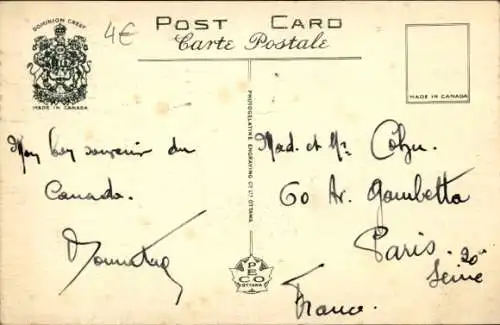 DOMINION CREST
MADE IN CANADA
4€
POST CARD
Carte Postale
MADE IN CANADA
PHOTOGELATINE ENGRAVING CO LTD. OTTAWA
souvenir du
Canada.
Mad. et Mr
60 Av. Gambetta
Paris. 20e
Seine
France.
PECO
OTTAWA